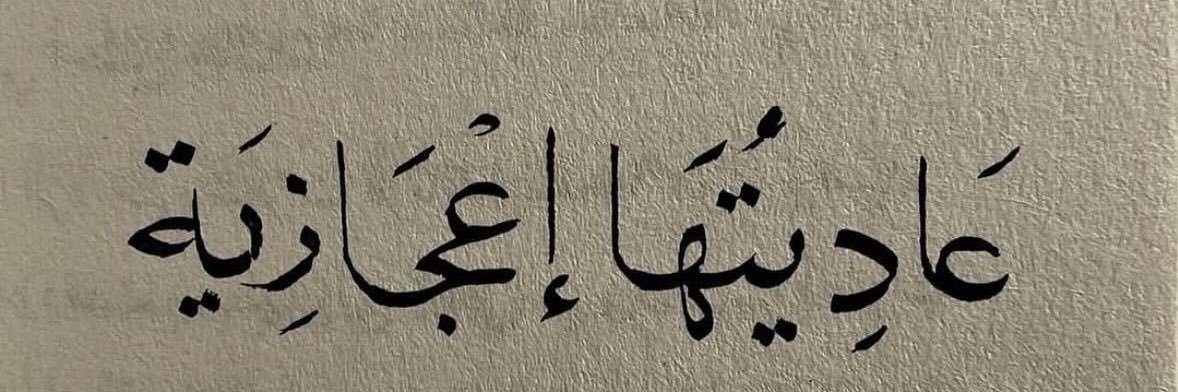 عَادِيتُهَا إعْجَازِيَة